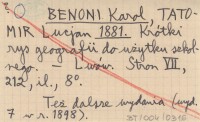 BENONI Karol, TATO-
MIR Lucjan 1881. Krótki
rys geografii do użytku szkol-
nego. – Lwów. Stron VII,
212, il., 8°.
Też dalsze wydania (wyd.
7 w r. 1898).